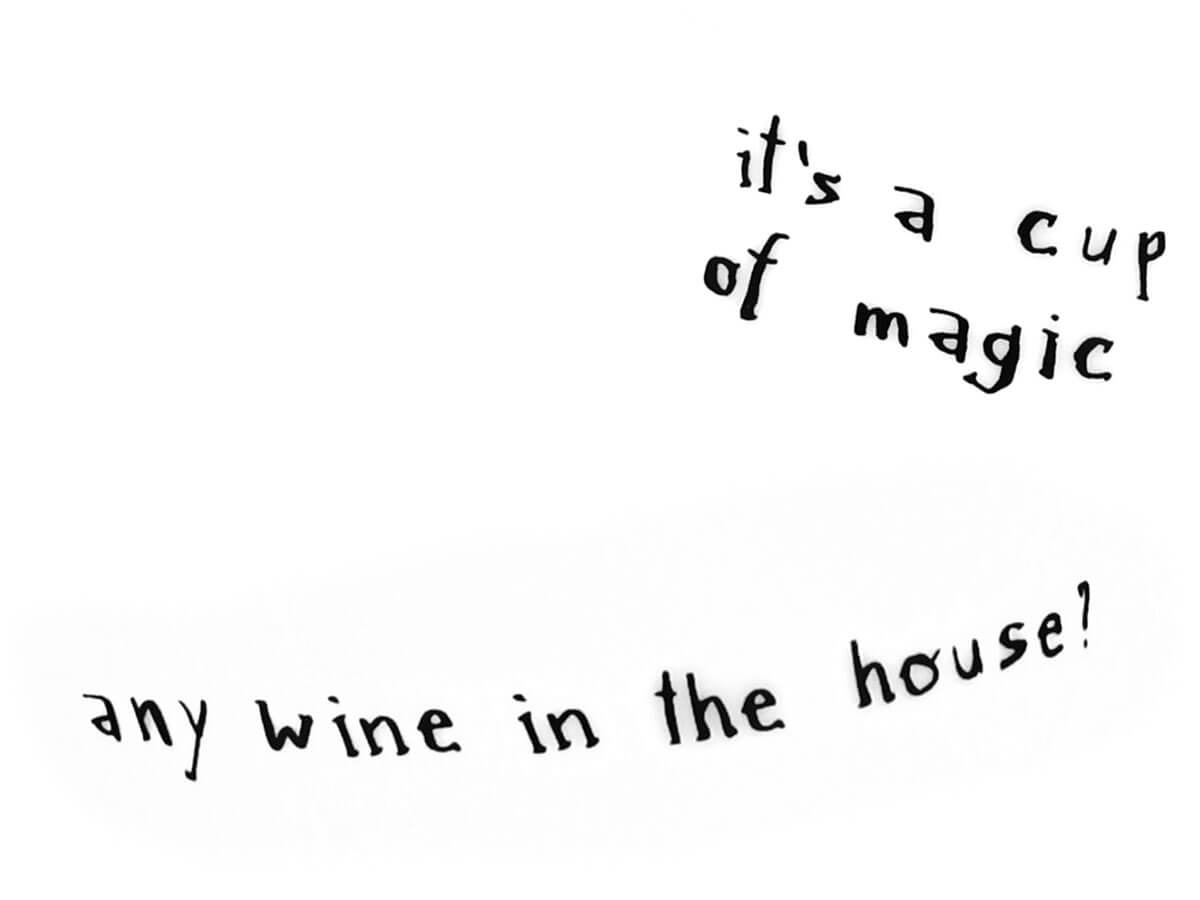 it's a cup
of magic
any wine in the house?